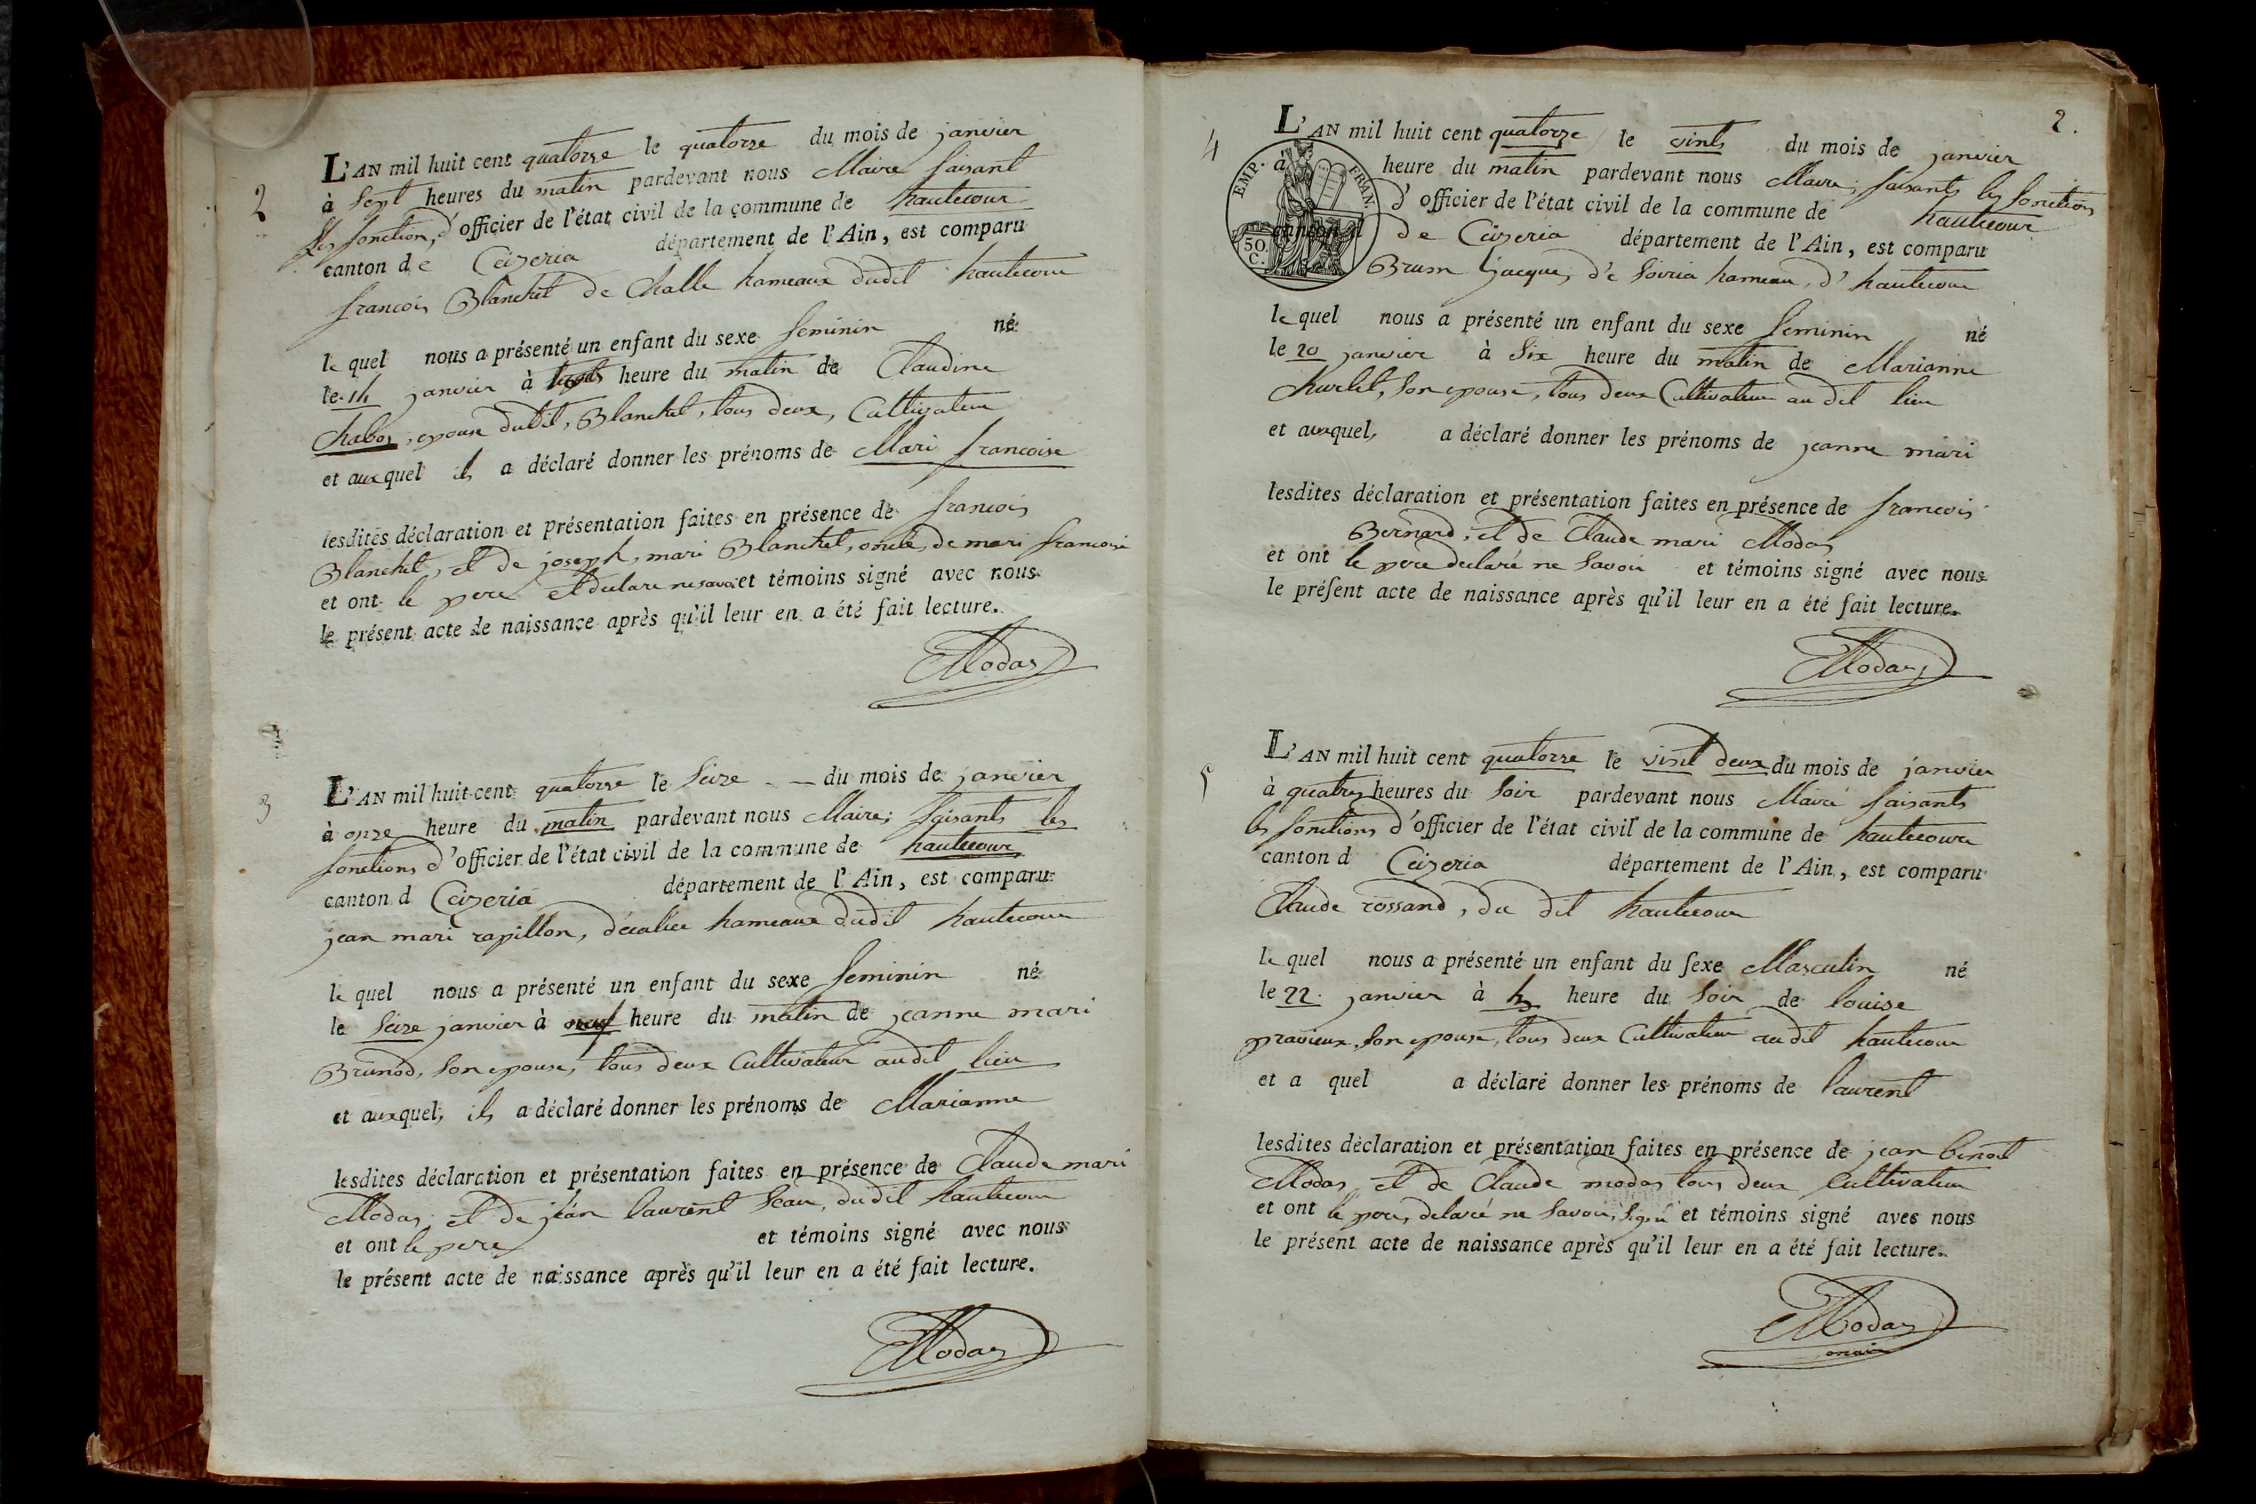 2
L'AN mil huit cent quatorze le quatorze du mois de janvier
à sept heures du matin pardevant nous Maire faisant
les fonction, d'officier de l'état civil de la commune de hautecour
canton de Ceizeria département de l'Ain, est comparu
francois Blanchet de Challe hameaux dudit hautecour
le quel nous a présenté un enfant du sexe feminin né
le 14 janvier à heure du matin de Claudine
Chabot, epouse dudit, Blanchet, tous deux, Cultivateur
et auxquel ils a déclaré donner les prénoms de Mari francoise
lesdites déclaration et présentation faites en présence de francois
Blanchet, et de joseph, mari Blanchet, oncle, de mari francoise
et ont le pere et declare ne savoi et témoins signé avec nous
le présent acte de naissance après qu'il leur en a été fait lecture.
Modas
3
L'AN mil huit cent quatorze le Seize du mois de janvier
à onze heure du matin pardevant nous Maire; faisants les
fonctions d'officier de l'état civil de la commune de hautecour
canton d Ceizeria département de l'Ain, est comparu
jean mari rapillon, hameaux dudit hautecour
le quel nous a présenté un enfant du sexe feminin né
le Seize janvier à neuf heure du matin de jeanne mari
Brunod, son epouse, tous deux Cultivateur audit lieu
et auxquel, ils a déclaré donner les prénoms de Marianne
lesdites déclaration et présentation faites en présence de Claude mari
Modas, et de jean laurent dudit hautecour
et ont le pere et témoins signé avec nous
le présent acte de naissance après qu'il leur en a été fait lecture.
Modas
2.
4
L'AN mil huit cent quatorze le vints du mois de janvier
à heure du matin pardevant nous Maire; faisants les fonctions
d'officier de l'état civil de la commune de hautecour
canton d de Ceizeria département de l'Ain, est comparu
EMP. FRAN.
50. C.
Brum jacque, de Soiria hameau, d'hautecour
le quel nous a présenté un enfant du sexe feminin né
le 20 janvier à Six heure du matin de Marianne
son epouse, tous deux Cultivateur au dit lieu
et auxquel, a déclaré donner les prénoms de jeanne mari
lesdites déclaration et présentation faites en présence de francois
Bernard, et de Claude mari Modas
et ont le pere declaré ne Savoir et témoins signé avec nous
le présent acte de naissance après qu'il leur en a été fait lecture.
Modas
5
L'AN mil huit cent quatorze le vint deux du mois de janvier
à quatres heures du Soir pardevant nous Maire faisants
les fonctions d'officier de l'état civil de la commune de hautecour
canton d Ceizeria département de l'Ain, est comparu
Claude rossand, du dit hautecour
le quel nous a présenté un enfant du sexe Masculin né
le 22. janvier à heure du Soir de louise
pravieux, son epouse, tous deux Cultivateur au dit hautecour
et a quel a déclaré donner les prénoms de laurent
lesdites déclaration et présentation faites en présence de jean benoit
Modas et de Claude modas tous deux Cultivateur
et ont le pere, delaré ne Savoir, signé et témoins signé avec nous
le présent acte de naissance après qu'il leur en a été fait lecture.
Modas
maire